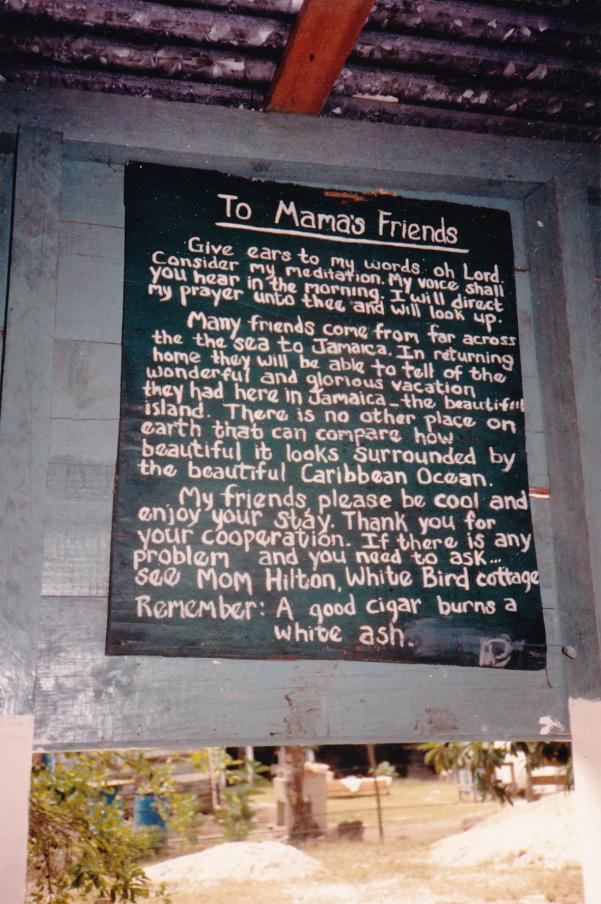 To Mama's Friends
Give ears to my words, oh Lord.
Consider my meditation. My voice shall
you hear in the morning. I will direct
my prayer unto thee and will look up.
Many friends come from far across
the the sea to Jamaica. In returning
home they will be able to tell of the
wonderful and glorious vacation
they had here in Jamaica - the beautiful
island. There is no other place on
earth that can compare how
beautiful it looks surrounded by
the beautiful Caribbean Ocean.
My friends please be cool and
enjoy your stay. Thank you for
your cooperation. If there is any
problem and you need to ask...
see Mom Hilton, White Bird cottage
Remember: A good cigar burns a
white ash.